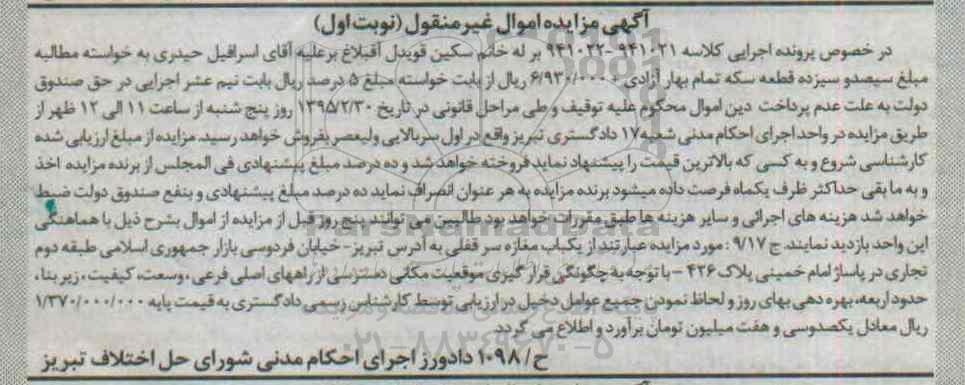 آگهی مزایده اموال غیر منقول (نوبت اول)
در خصوص پرونده اجرایی کلاسه ۹۴۱۰۲۱ -۹۴۱۰۲۲ بر له خانم سکین قویدل آقبلاغ برعلیه آقای اسرافیل حیدری به خواسته مطالبه
مبلغ سیصدو سیزده قطعه سکه تمام بهار آزادی + ۶/۹۳۰/۰۰۰ ریال از بابت خواسته مبلغ ۵ درصد ریال بابت نیم عشر اجرایی در حق صندوق
دولت به علت عدم پرداخت دین اموال محکوم علیه توقیف و طی مراحل قانونی در تاریخ ۱۳۹۵/۲/۳۰ روز پنج شنبه از ساعت ۱۱ الی ۱۲ ظهر از
طریق مزایده در واحد اجرای احکام مدنی شعبه ۱۷ دادگستری تبریز واقع در اول سربالایی ولیعصر بفروش خواهد رسید. مزایده از مبلغ ارزیابی شده
کارشناسی شروع و به کسی که بالاترین قیمت را پیشنهاد نماید فروخته خواهد شد و ده درصد مبلغ پیشنهادی فی المجلس از برنده مزایده اخذ
و به ما بقی حداکثر ظرف یکماه فرصت داده میشود برنده مزایده به هر عنوان انصراف نماید ده درصد مبلغ پیشنهادی و بنفع صندوق دولت ضبط
خواهد شد هزینه های اجرائی و سایر هزینه ها طبق مقررات خواهد بود طالبین می توانند پنج روز قبل از مزایده از اموال بشرح ذیل با هماهنگی
این واحد بازدید نمایند. ج ۹/۱۷ : مورد مزایده عبارتند از یکباب مغازه سر قفلی به آدرس تبریز- خیابان فردوسی بازار جمهوری اسلامی طبقه دوم
تجاری در پاساژ امام خمینی پلاک ۴۲۶ – با توجه به چگونگی قرار گیری موقعیت مکانی دسترسی از راههای اصلی فرعی، وسعت، کیفیت، زیر بنا،
حدود اربعه، بهره دهی بهای روز و لحاظ نمودن جمیع عوامل دخیل در ارزیابی توسط کارشناس رسمی دادگستری به قیمت پایه ۱/۳۷۰/۰۰۰/۰۰۰
ریال معادل یکصدوسی و هفت میلیون تومان برآورد و اطلاع می گردد
ح/ ۱۰۹۸ دادورز اجرای احکام مدنی شورای حل اختلاف تبریز
ParsNamadData
۰۲۱-۸۸۳۴۹۶۷۰-۵